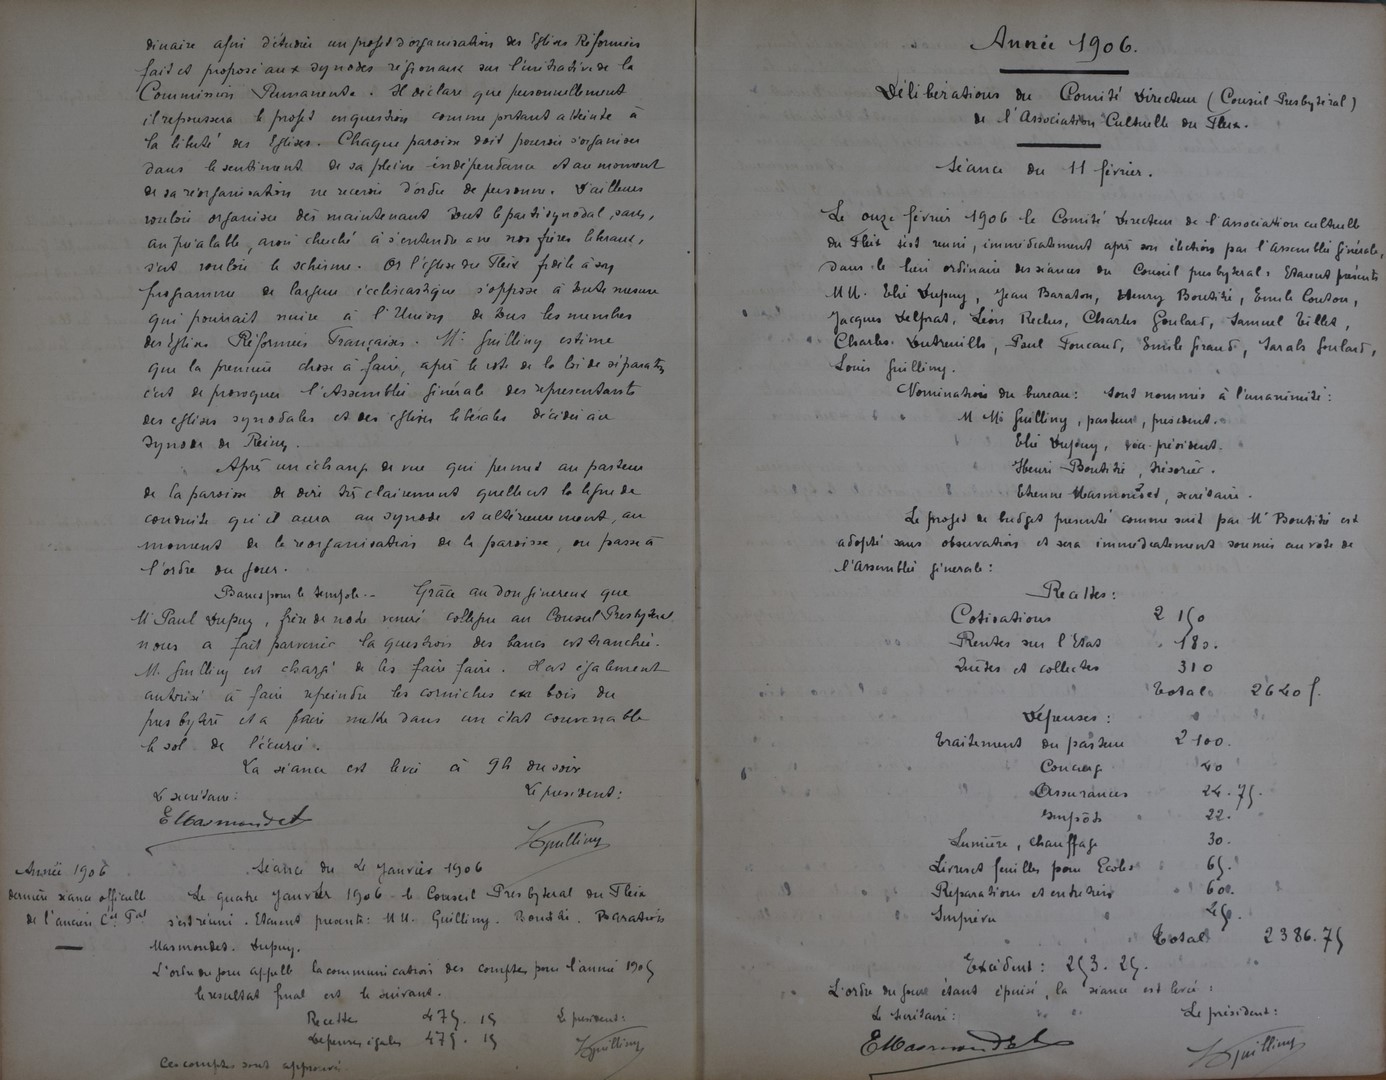 dinaire afin d'étudier un projet d'organisation des Eglises Réformées
fait et proposé aux synodes régionaux sur l'initiative de la
Commission Permanente. Il déclare que personnellement
il repoussera le projet en question comme portant atteinte à
la liberté des Eglises. Chaque paroisse doit pouvoir s'organiser
dans le sentiment de sa pleine indépendance et au moment
de sa réorganisation ne recevoir d'ordre de personne. D'ailleurs
vouloir organiser dès maintenant tout le parti synodal, sans,
au préalable, avoir cherché à s'entendre avec nos frères libéraux,
c'est vouloir le schisme. Or l'église du Fleix fidèle à son
programme de largeur ecclésiastique s'oppose à toute mesure
qui pourrait nuire à l'Union de tous les membres
des Eglises Réformées Françaises. Mr Guilliny estime
que la première chose à faire, après le vote de la loi de séparation
c'est de provoquer l'Assemblée Générale des représentants
des églises synodales et des églises libérales décidée au
Synode de Reims.
Après un échange de vue qui permet au pasteur
de la paroisse de dire très clairement quelle est la ligne de
conduite qu'il aura au synode et ultérieurement, au
moment de la réorganisation de la paroisse, on passe à
l'ordre du jour.
Bancs pour le temple. - Grâce au don généreux que
Mr Paul Dupuy, frère de notre vénéré collègue au Conseil Presbytéral
nous a fait parvenir la question des bancs est tranchée.
M. Guilliny est chargé de les faire faire. Il est également
autorisé à faire repeindre les corniches en bois du
presbytère et à faire mettre dans un état convenable
le sol de l'écurie.
La séance est levée à 9h du soir
Le secrétaire: Le président:
EMarmondet
Guilliny
Année 1906
dernière séance officielle
de l'ancien Cel Pal
Séance du 4 Janvier 1906
Le quatre Janvier 1906 le Conseil Presbytéral du Fleix
s'est réuni. Etaient présents: MM. Guilliny. Boutité. Baraton
Marmondet. Dupuy.
L'ordre du jour appelle la communication des comptes pour l'année 1905
le résultat final est le suivant.
Recettes 475.15 Le président:
Dépenses égales 475.15 Guilliny
Ces comptes sont approuvés.
Année 1906.
Délibérations du Comité Directeur (Conseil Presbytéral)
de l'Association Cultuelle du Fleix.
Séance du 11 février.
Le onze février 1906 le Comité Directeur de l'association cultuelle
du Fleix s'est réuni, immédiatement après son élection par l'Assemblée Générale,
dans le lieu ordinaire des séances du Conseil presbytéral: Etaient présents
MM. Elie Dupuy, Jean Baraton, Henry Boutité, Emile Couton,
Jacques Delprat, Léon Reclus, Charles Goulard, Samuel Tillet,
Charles Dutreuilh, Paul Foucaud, Emile Giraud, Sarah Goulard,
Louis Guilliny.
Nomination du bureau: sont nommés à l'unanimité:
M Mrs Guilliny, pasteur, président.
Elie Dupuy, vice-président.
Henri Boutité, trésorier.
Etienne Marmondet, secrétaire.
Le projet de budget présenté comme suit par Mr Boutité est
adopté sans observation et sera immédiatement soumis au vote de
l'Assemblée générale:
Recettes:
Cotisations 2150
Rentes sur l'Etat 180.
Quêtes et collectes 310
Total 2640 f.
Dépenses:
Traitement du pasteur 2100.
Concierge 40
Assurances 24.75.
Impôts 22.
Lumière, chauffage 30.
Livres et feuilles pour Ecoles 65.
Réparations et entretien 60.
Imprévu 45.
Total 2386.75
Excédent: 253.25.
L'ordre du jour étant épuisé, la séance est levée:
Le secrétaire: Le président:
EMarmondet Guilliny